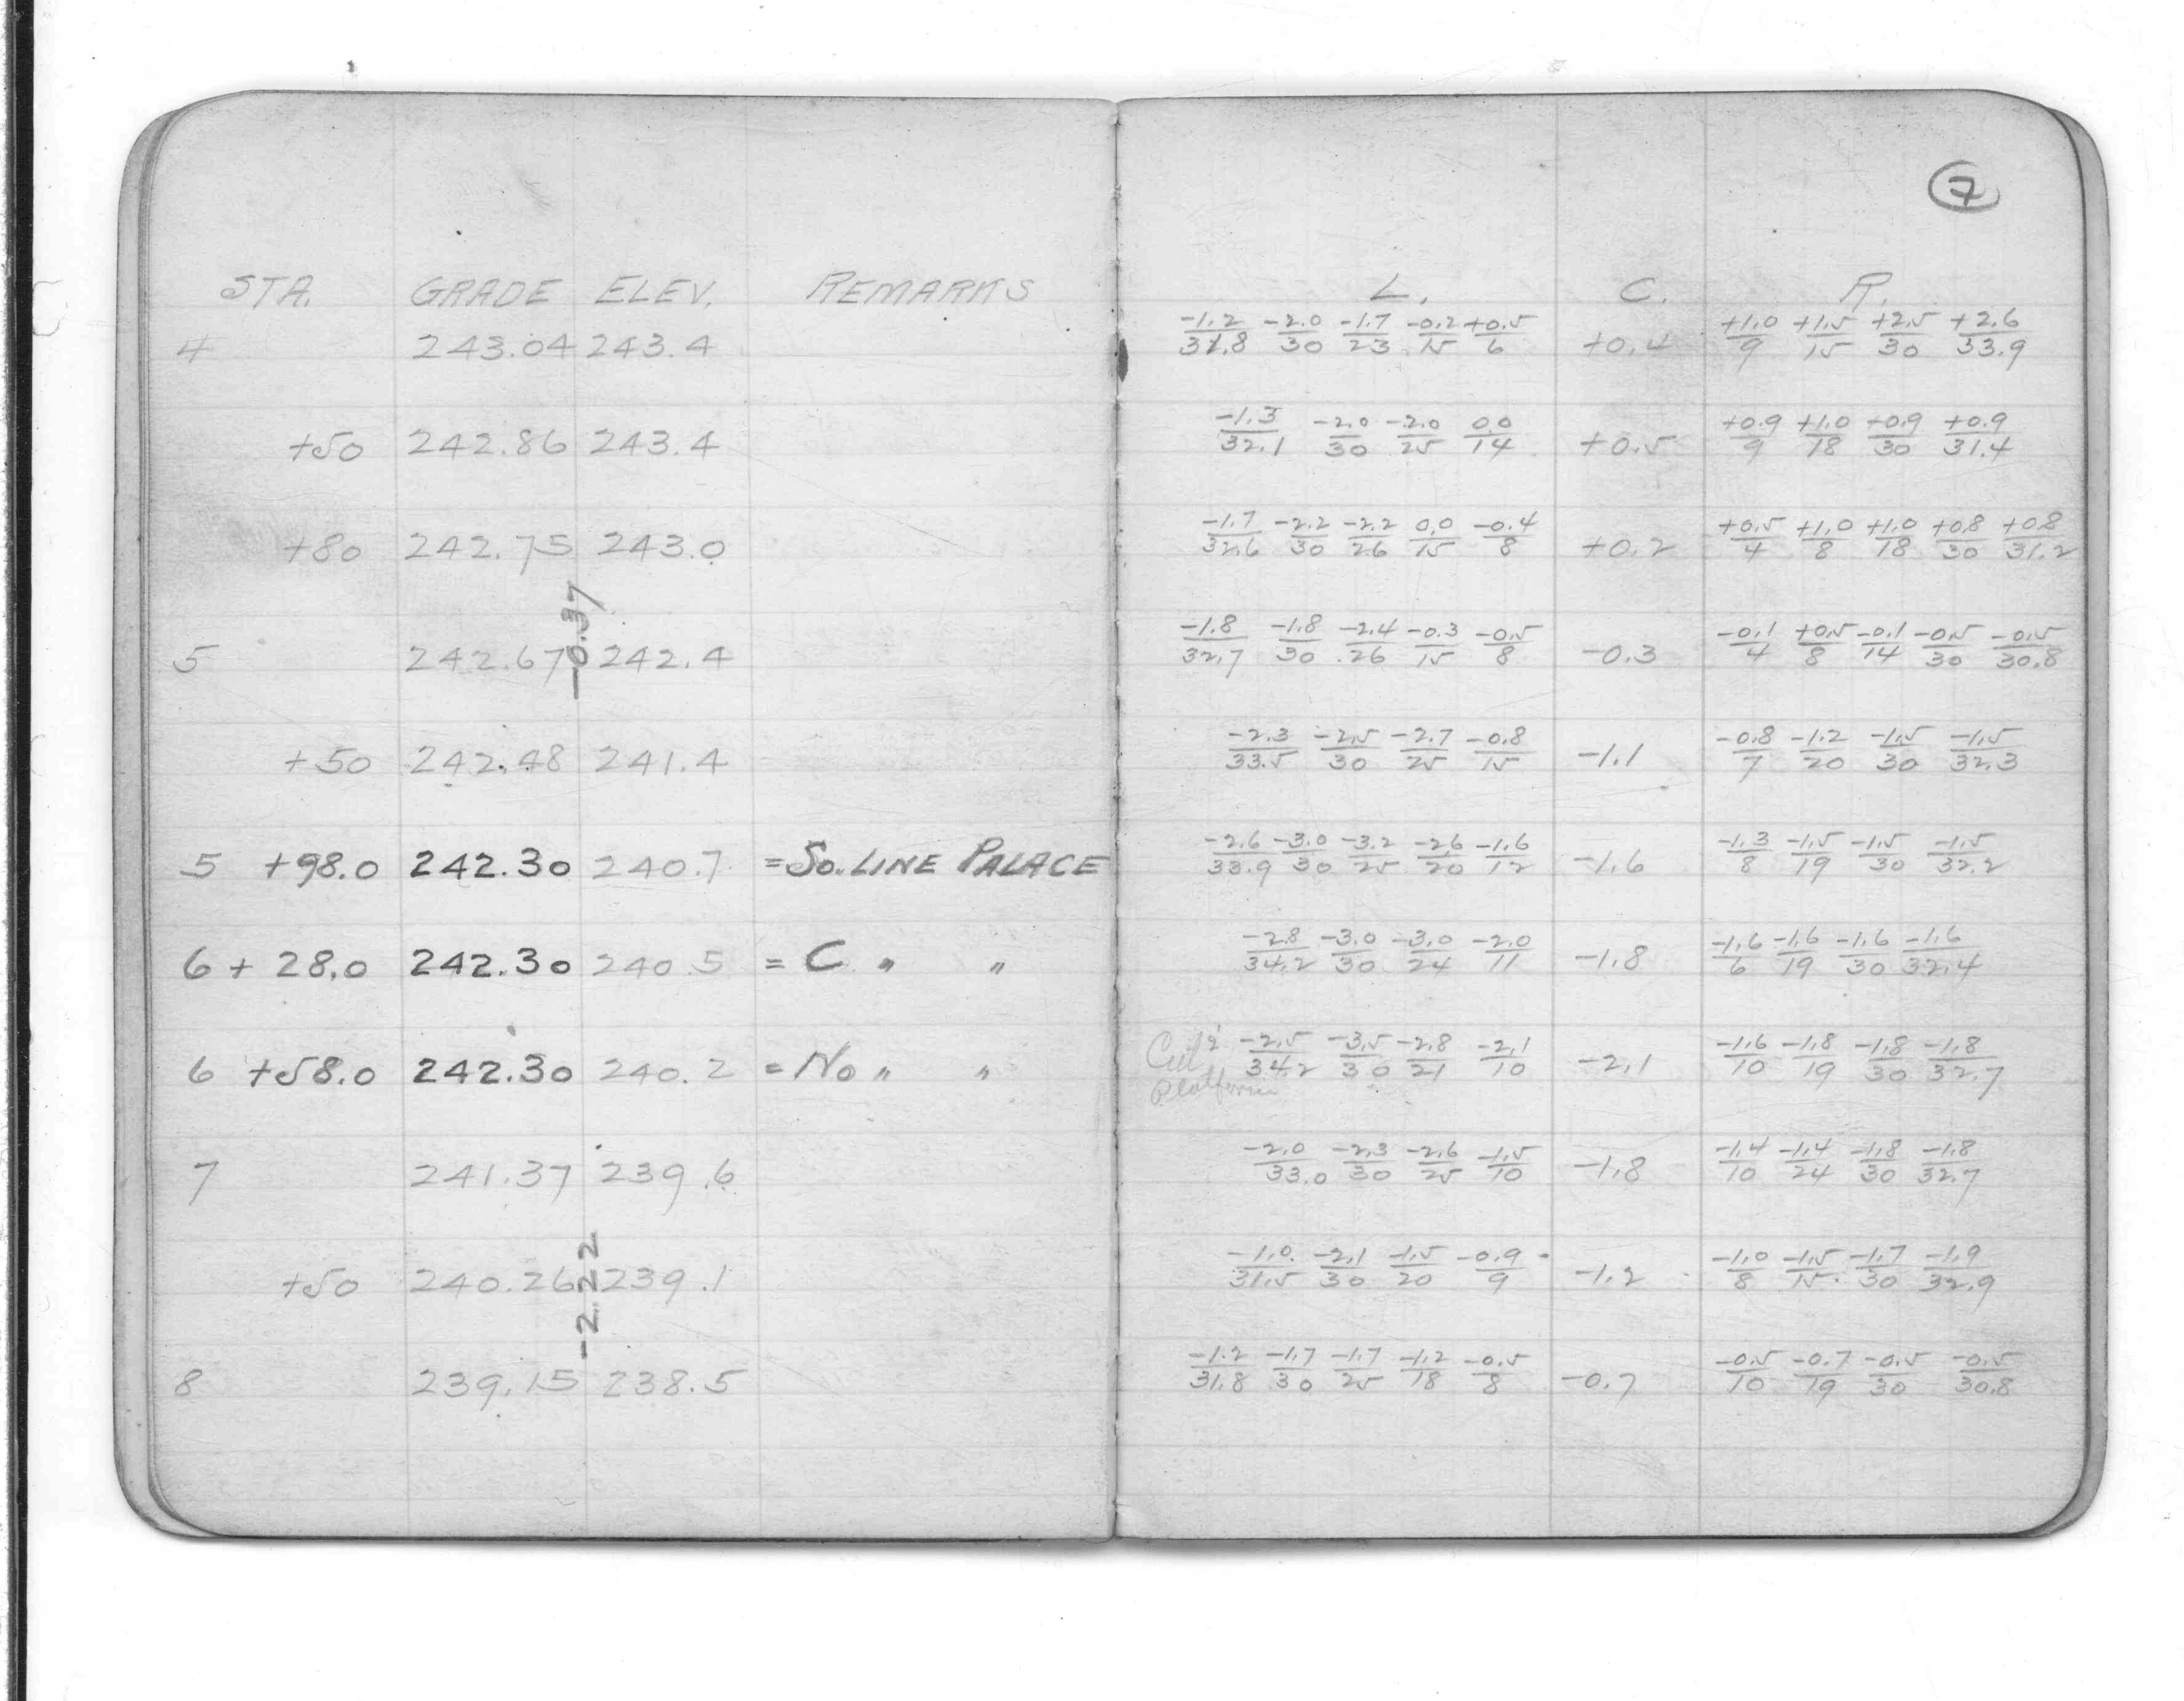 7
STA. GRADE ELEV. REMARKS L. C. R.
4 243.04 243.4 -1.2/31.8 -2.0/30 -1.7/23 -0.2/15 +0.5/6 +0.4 +1.0/9 +1.5/15 +2.5/30 +2.6/33.9
+50 242.86 243.4 -1.3/32.1 -2.0/30 -2.0/25 0.0/14 +0.5 +0.9/9 +1.0/18 +0.9/30 +0.9/31.4
+80 242.75 243.0 -1.7/32.6 -2.2/30 -2.2/26 0.0/15 -0.4/8 +0.2 +0.5/4 +1.0/8 +1.0/18 +0.8/30 +0.8/31.2
-0.37
5 242.67 242.4 -1.8/32.7 -1.8/30 -2.4/26 -0.3/15 -0.5/8 -0.3 -0.1/4 +0.5/8 -0.1/14 -0.5/30 -0.5/30.8
+50 242.48 241.4 -2.3/33.5 -2.5/30 -2.7/25 -0.8/15 -1.1 -0.8/7 -1.2/20 -1.5/30 -1.5/32.3
5 +98.0 242.30 240.7 = So. LINE PALACE -2.6/33.9 -3.0/30 -3.2/25 -2.6/20 -1.6/12 -1.6 -1.3/8 -1.5/19 -1.5/30 -1.5/32.2
6 + 28.0 242.30 240.5 = C " " -2.8/34.2 -3.0/30 -3.0/24 -2.0/11 -1.8 -1.6/6 -1.6/19 -1.6/30 -1.6/32.4
6 +58.0 242.30 240.2 = No " " Cut 2' Platform -2.5/34.2 -3.5/30 -2.8/21 -2.1/10 -2.1 -1.6/10 -1.8/19 -1.8/30 -1.8/32.7
7 241.37 239.6 -2.0/33.0 -2.3/30 -2.6/25 -1.5/10 -1.8 -1.4/10 -1.4/24 -1.8/30 -1.8/32.7
+50 240.26 239.1 -1.0/31.5 -2.1/30 -1.5/20 -0.9/9 -1.2 -1.0/8 -1.5/15 -1.7/30 -1.9/32.9
-2.22
8 239.15 238.5 -1.2/31.8 -1.7/30 -1.7/25 -1.2/18 -0.5/8 -0.7 -0.5/10 -0.7/19 -0.5/30 -0.5/30.8